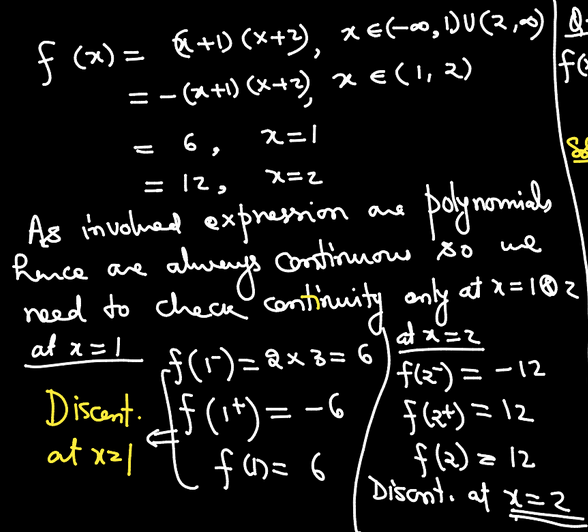 f(x) = (x+1)(x+2), x∈(-∞,1)∪(2,∞)
= -(x+1)(x+2), x∈(1, 2)
= 6, x=1
= 12, x=2
As involved expression are polynomials
hence are always continuous so we
need to check continuity only at x=1 & 2
at x=1
f(1⁻) = 2×3 = 6
f(1⁺) = -6
f(1) = 6
Discont.
at x=1
at x=2
f(2⁻) = -12
f(2⁺) = 12
f(2) = 12
Discont. at x=2